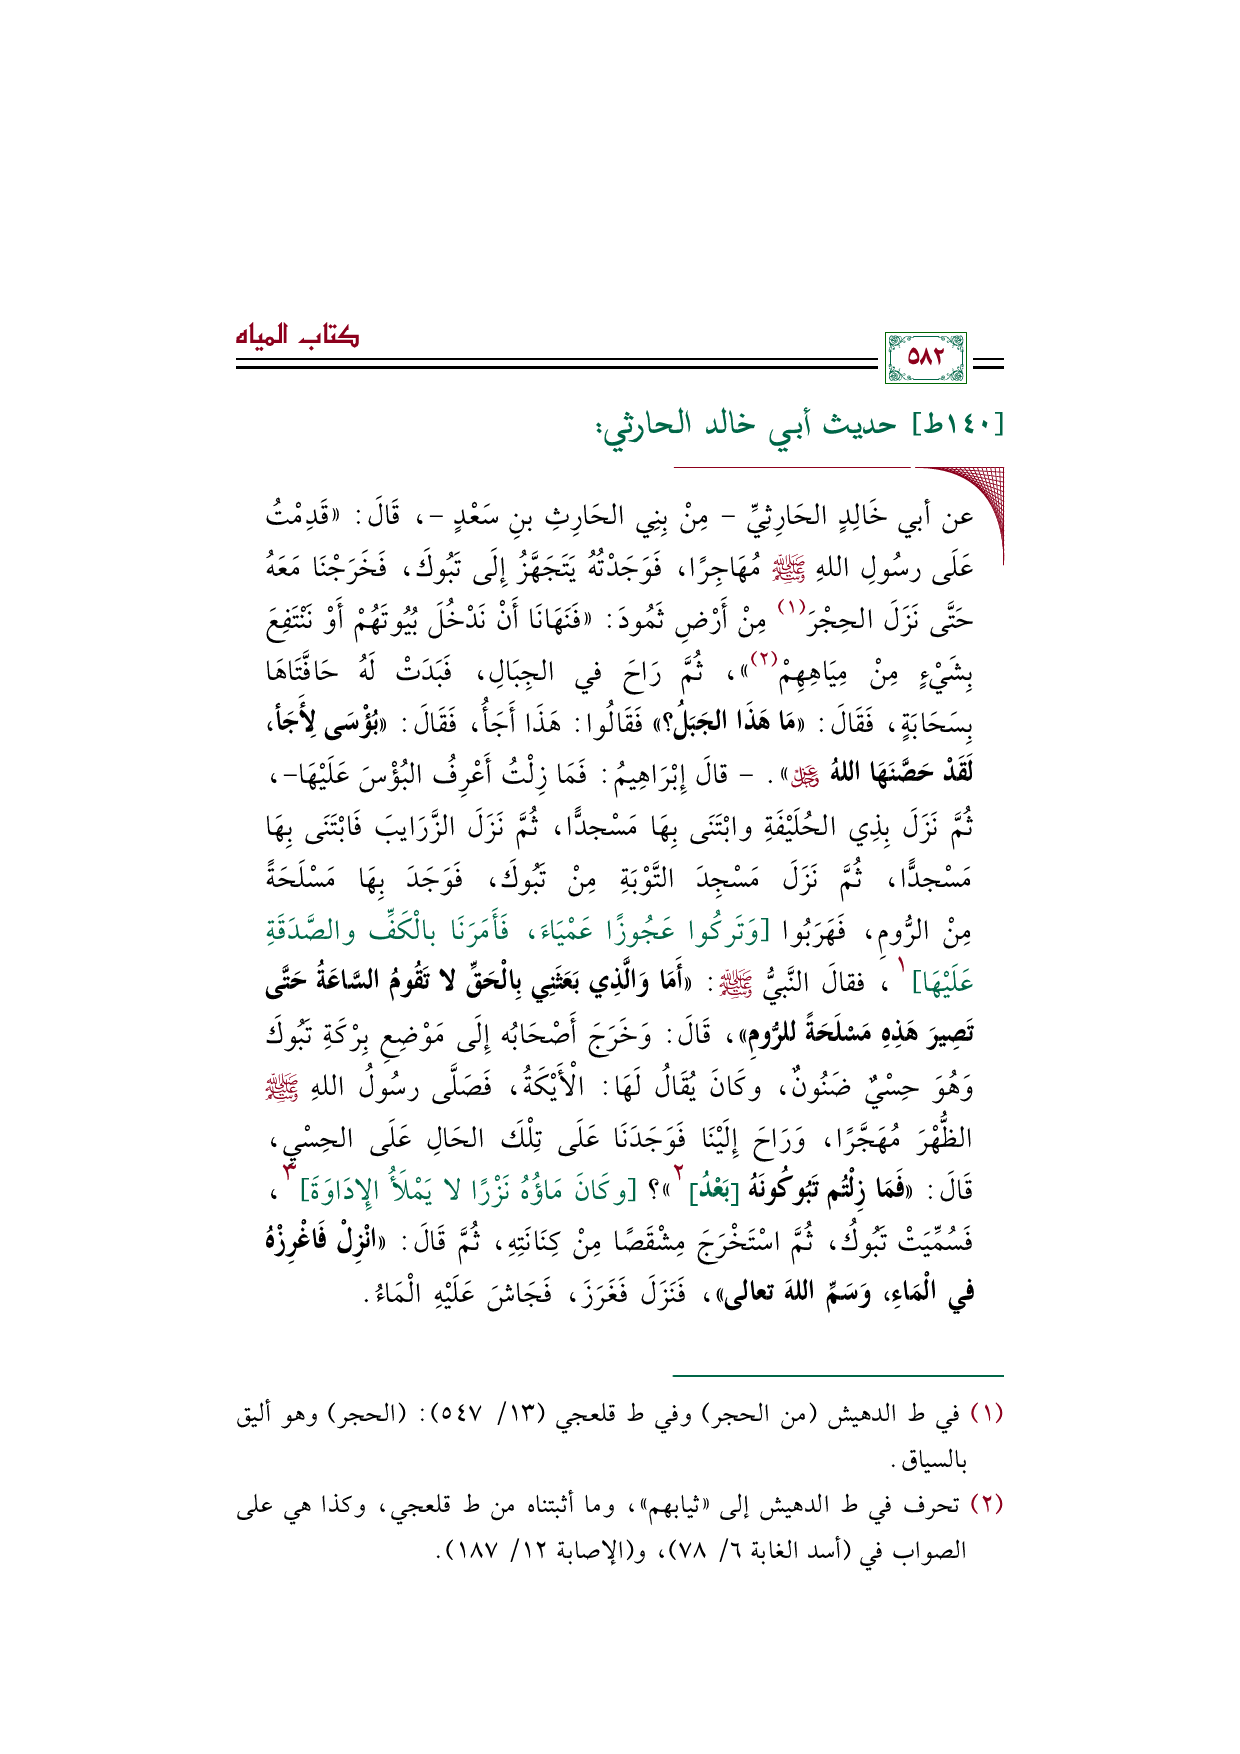 كتاب المياه
٥٨٢
[١٤٠ط] حديث أبي خالد الحارثي:
عن أبي خَالِدٍ الحَارِثِيِّ - مِنْ بِنِي الحَارِثِ بنِ سَعْدٍ -، قَالَ: «قَدِمْتُ
عَلَى رسُولِ اللهِ ﷺ مُهَاجِرًا، فَوَجَدْتُهُ يَتَجَهَّزُ إِلَى تَبُوكَ، فَخَرَجْنَا مَعَهُ
حَتَّى نَزَلَ الحِجْرَ(١) مِنْ أَرْضِ ثَمُودَ: «فَنَهَانَا أَنْ نَدْخُلَ بُيُوتَهُمْ أَوْ نَنْتَفِعَ
بِشَيْءٍ مِنْ مِيَاهِهِمْ(٢)»، ثُمَّ رَاحَ في الجِبَالِ، فَبَدَتْ لَهُ حَافَّتَاهَا
بِسَحَابَةٍ، فَقَالَ: «مَا هَذَا الجَبَلُ؟» فَقَالُوا: هَذَا أَجَأُ، فَقَالَ: «بُؤْسَى لِأَجَأ،
لَقَدْ حَصَّنَهَا اللهُ ﷿». - قالَ إِبْرَاهِيمُ: فَمَا زِلْتُ أَعْرِفُ البُؤْسَ عَلَيْهَا-،
ثُمَّ نَزَلَ بِذِي الحُلَيْفَةِ وابْتَنَى بِهَا مَسْجدًّا، ثُمَّ نَزَلَ الزَّرَايبَ فَابْتَنَى بِهَا
مَسْجدًّا، ثُمَّ نَزَلَ مَسْجِدَ التَّوْبَةِ مِنْ تَبُوكَ، فَوَجَدَ بِهَا مَسْلَحَةً
مِنْ الرُّومِ، فَهَرَبُوا [وَتَركُوا عَجُوزًا عَمْيَاءَ، فَأَمَرَنَا بالْكَفِّ والصَّدَقَةِ
عَلَيْهَا]١، فقالَ النَّبيُّ ﷺ: «أَمَا وَالَّذِي بَعَثَنِي بِالْحَقِّ لا تَقُومُ السَّاعَةُ حَتَّى
تَصِيرَ هَذِهِ مَسْلَحَةً للرُّومِ»، قَالَ: وَخَرَجَ أَصْحَابُه إِلَى مَوْضِعِ بِرْكَةِ تَبُوكَ
وَهُوَ حِسْيٌ ضَنُونٌ، وكَانَ يُقَالُ لَهَا: الْأَيْكَةُ، فَصَلَّى رسُولُ اللهِ ﷺ
الظُّهْرَ مُهَجَّرًا، وَرَاحَ إِلَيْنَا فَوَجَدَنَا عَلَى تِلْكَ الحَالِ عَلَى الحِسْيِ،
قَالَ: «فَمَا زِلْتُم تَبُوكُونَهُ [بَعْدُ]٢»؟ [وكَانَ مَاؤُهُ نَزْرًا لا يَمْلَأُ الإِدَاوَةَ]٣،
فَسُمِّيَتْ تَبُوكُ، ثُمَّ اسْتَخْرَجَ مِشْقَصًا مِنْ كِنَانَتِهِ، ثُمَّ قَالَ: «انْزِلْ فَاغْرِزْهُ
في الْمَاءِ، وَسَمِّ اللهَ تعالى»، فَنَزَلَ فَغَرَزَ، فَجَاشَ عَلَيْهِ الْمَاءُ.
(١) في ط الدهيش (من الحجر) وفي ط قلعجي (١٣/ ٥٤٧): (الحجر) وهو أليق
بالسياق.
(٢) تحرف في ط الدهيش إلى «ثيابهم»، وما أثبتناه من ط قلعجي، وكذا هي على
الصواب في (أسد الغابة ٦/ ٧٨)، و(الإصابة ١٢/ ١٨٧).